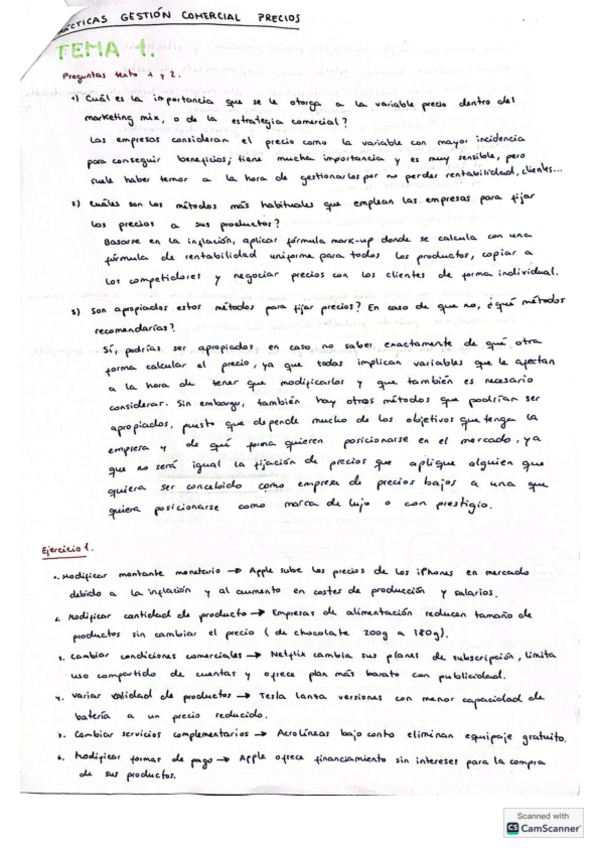 PRÁCTICAS GESTIÓN COMERCIAL PRECIOS
TEMA 1.
Preguntas texto 1 y 2.
1) Cuál es la importancia que se le otorga a la variable precio dentro del
marketing mix, o de la estrategia comercial?
Las empresas consideran el precio como la variable con mayor incidencia
para conseguir beneficios; tiene mucha importancia y es muy sensible, pero
suele haber temor a la hora de gestionarlos por no perder rentabilidad, clientes...
2) Cuáles son los métodos más habituales que emplean las empresas para fijar
los precios a sus productos?
Basarse en la inflación, aplicar fórmula mark-up donde se calcula con una
fórmula de rentabilidad uniforme para todos los productos, copiar a
los competidores y negociar precios con los clientes de forma individual.
3) Son apropiados estos métodos para fijar precios? En caso de que no, ¿qué métodos
recomendarías?
Sí, podrías ser apropiados en caso no saber exactamente de qué otra
forma calcular el precio, ya que todas implican variables que le afectan
a la hora de tener que modificarlos y que también es necesario
considerar. Sin embargo, también hay otros métodos que podrían ser
apropiados, puesto que depende mucho de los objetivos que tenga la
empresa y de qué forma quieren posicionarse en el mercado, ya
que no será igual la fijación de precios que aplique alguien que
quiera ser concebido como empresa de precios bajos a una que
quiera posicionarse como marca de lujo o con prestigio.
Ejercicio 1.
1. Modificar montante monetario → Apple sube los precios de los iPhones en mercado
debido a la inflación y al aumento en costes de producción y salarios.
2. Modificar cantidad de producto → Empresas de alimentación reducen tamaño de
productos sin cambiar el precio (de chocolate 200g a 180g).
3. Cambiar condiciones comerciales → Netflix cambia sus planes de subscripción, limita
uso compartido de cuentas y ofrece plan más barato con publicidad.
4. Variar calidad de productos → Tesla lanza versiones con menor capacidad de
batería a un precio reducido.
5. Cambiar servicios complementarios → Aerolíneas bajo costo eliminan equipaje gratuito.
6. Modificar formas de pago → Apple ofrece financiamiento sin intereses para la compra
de sus productos.
Scanned with
CS CamScanner